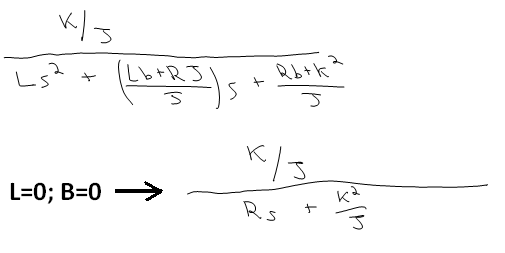 K/J
Ls² + ((Lb+RJ)/J)s + (Rb+K²)/J
L=0; B=0 → K/J
Rs + K²/J